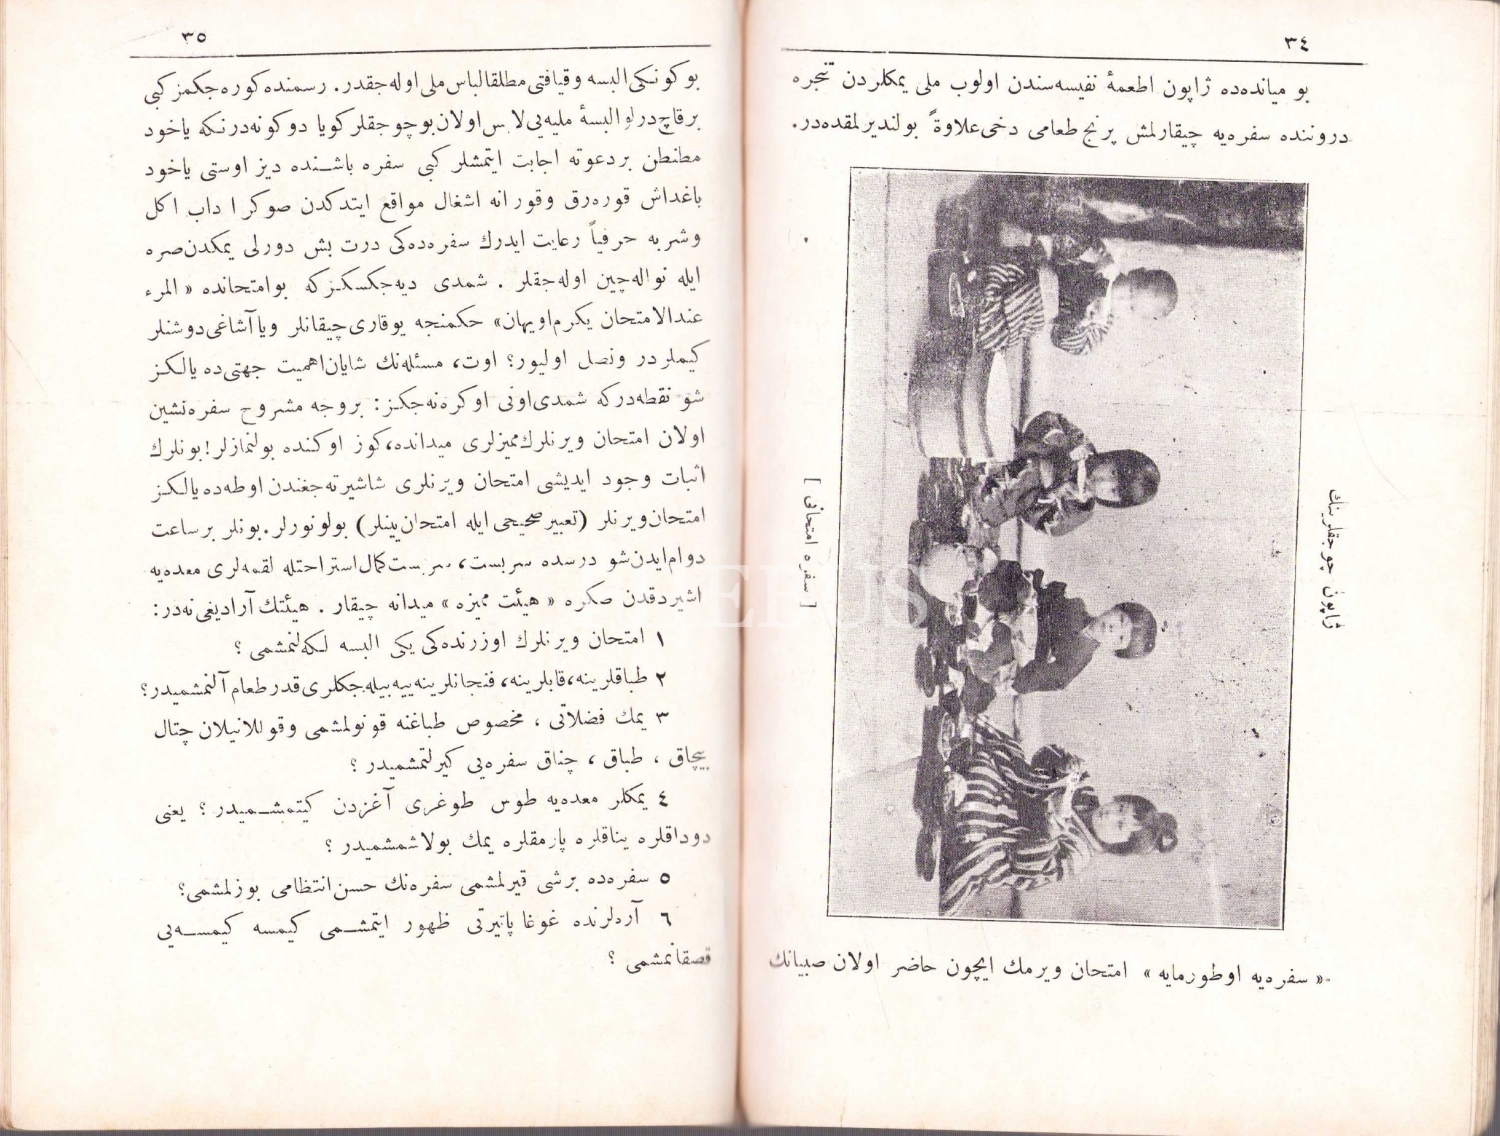 ٣٤
بو میانده‌ده ژاپون اطعمۀ نفیسه‌سندن اولوب ملی یمكلردن تنجره
دروننده سفره‌یه چیقارلمش پرنج طعامی دخی علاوةً بولندیرلمقده‌در.
ژاپون چوجقلرینك
[ سفره امتحانی ]
« سفره‌یه اوطورمایه » امتحان ویرمك ایچون حاضر اولان صبیانك
٣٥
بو كونكی البسه و قیافتی مطلقا لباس ملی اوله‌جقدر. رسمنده كوره‌جكمز كبی
برقاچ درلو البسۀ ملیه‌یی لابس اولان بو چوجقلر كویا دوكونه درنكه یاخود
مطنطن بر دعوته اجابت ایتمشلر كبی سفره باشنده دیز اوستی یاخود
باغداش قوره‌رق وقورانه اشغال مواقع ایتدكدن صوكرا داب اكل
وشربه حرفیاً رعایت ایدرك سفره‌ده‌كی درت بش دورلی یمكدن صره
ایله نواله‌چین اوله‌جقلر . شمدی دیه‌جكسكزكه بو امتحانده « المرء
عندالامتحان یكرم اویهان» حكمنجه یوقاری چیقانلر ویا آشاغی دوشنلر
كیملردر ونصل اولیور؟ اوت، مسئله‌نك شایان اهمیت جهتی ده یالكز
شو نقطه‌دركه شمدی اونی اوكره‌نه‌جكز: بروجه مشروح سفره‌نشین
اولان امتحان ویرنلرك ممیزلری میدانده، كوز اوكنده بولنمازلر! بونلرك
اثبات وجود ایدیشی امتحان ویرنلری شاشیرته‌جغندن اوطه‌ده یالكز
امتحان ویرنلر (تعبیر صحیحی ایله امتحان ینیلر) بولونورلر. بونلر بر ساعت
دوام ایدن شو درسده سربست، سربست كمال استراحتله لقمه‌لری معده‌یه
اشیردقدن صكره « هیئت ممیزه » میدانه چیقار . هیئتك آرادیغی نه‌در:
١ امتحان ویرنلرك اوزرنده‌كی یكی البسه لكه‌لنمشمی ؟
٢ طباقلرینه، قابلرینه، فنجانلرینه ییه‌بیله‌جكلری قدر طعام آلنمشمیدر؟
٣ یمك فضلاتی ، مخصوص طباغنه قونولمشمی وقوللانیلان چتال
بیچاق ، طباق ، چناق سفره‌یی كیرلتمشمیدر ؟
٤ یمكلر معده‌یه طوس طوغری آغزدن كیتمشمیدر ؟ یعنی
دوداقلره یناقلره پارمقلره یمك بولاشمشمیدر ؟
٥ سفره‌ده برشی قیرلمشمی سفره‌نك حسن انتظامی بوزلمشمی؟
٦ آره‌لرنده غوغا پاتیرتی ظهور ایتمشمی كیمسه كیمسه‌یی
قصقانمشمی ؟